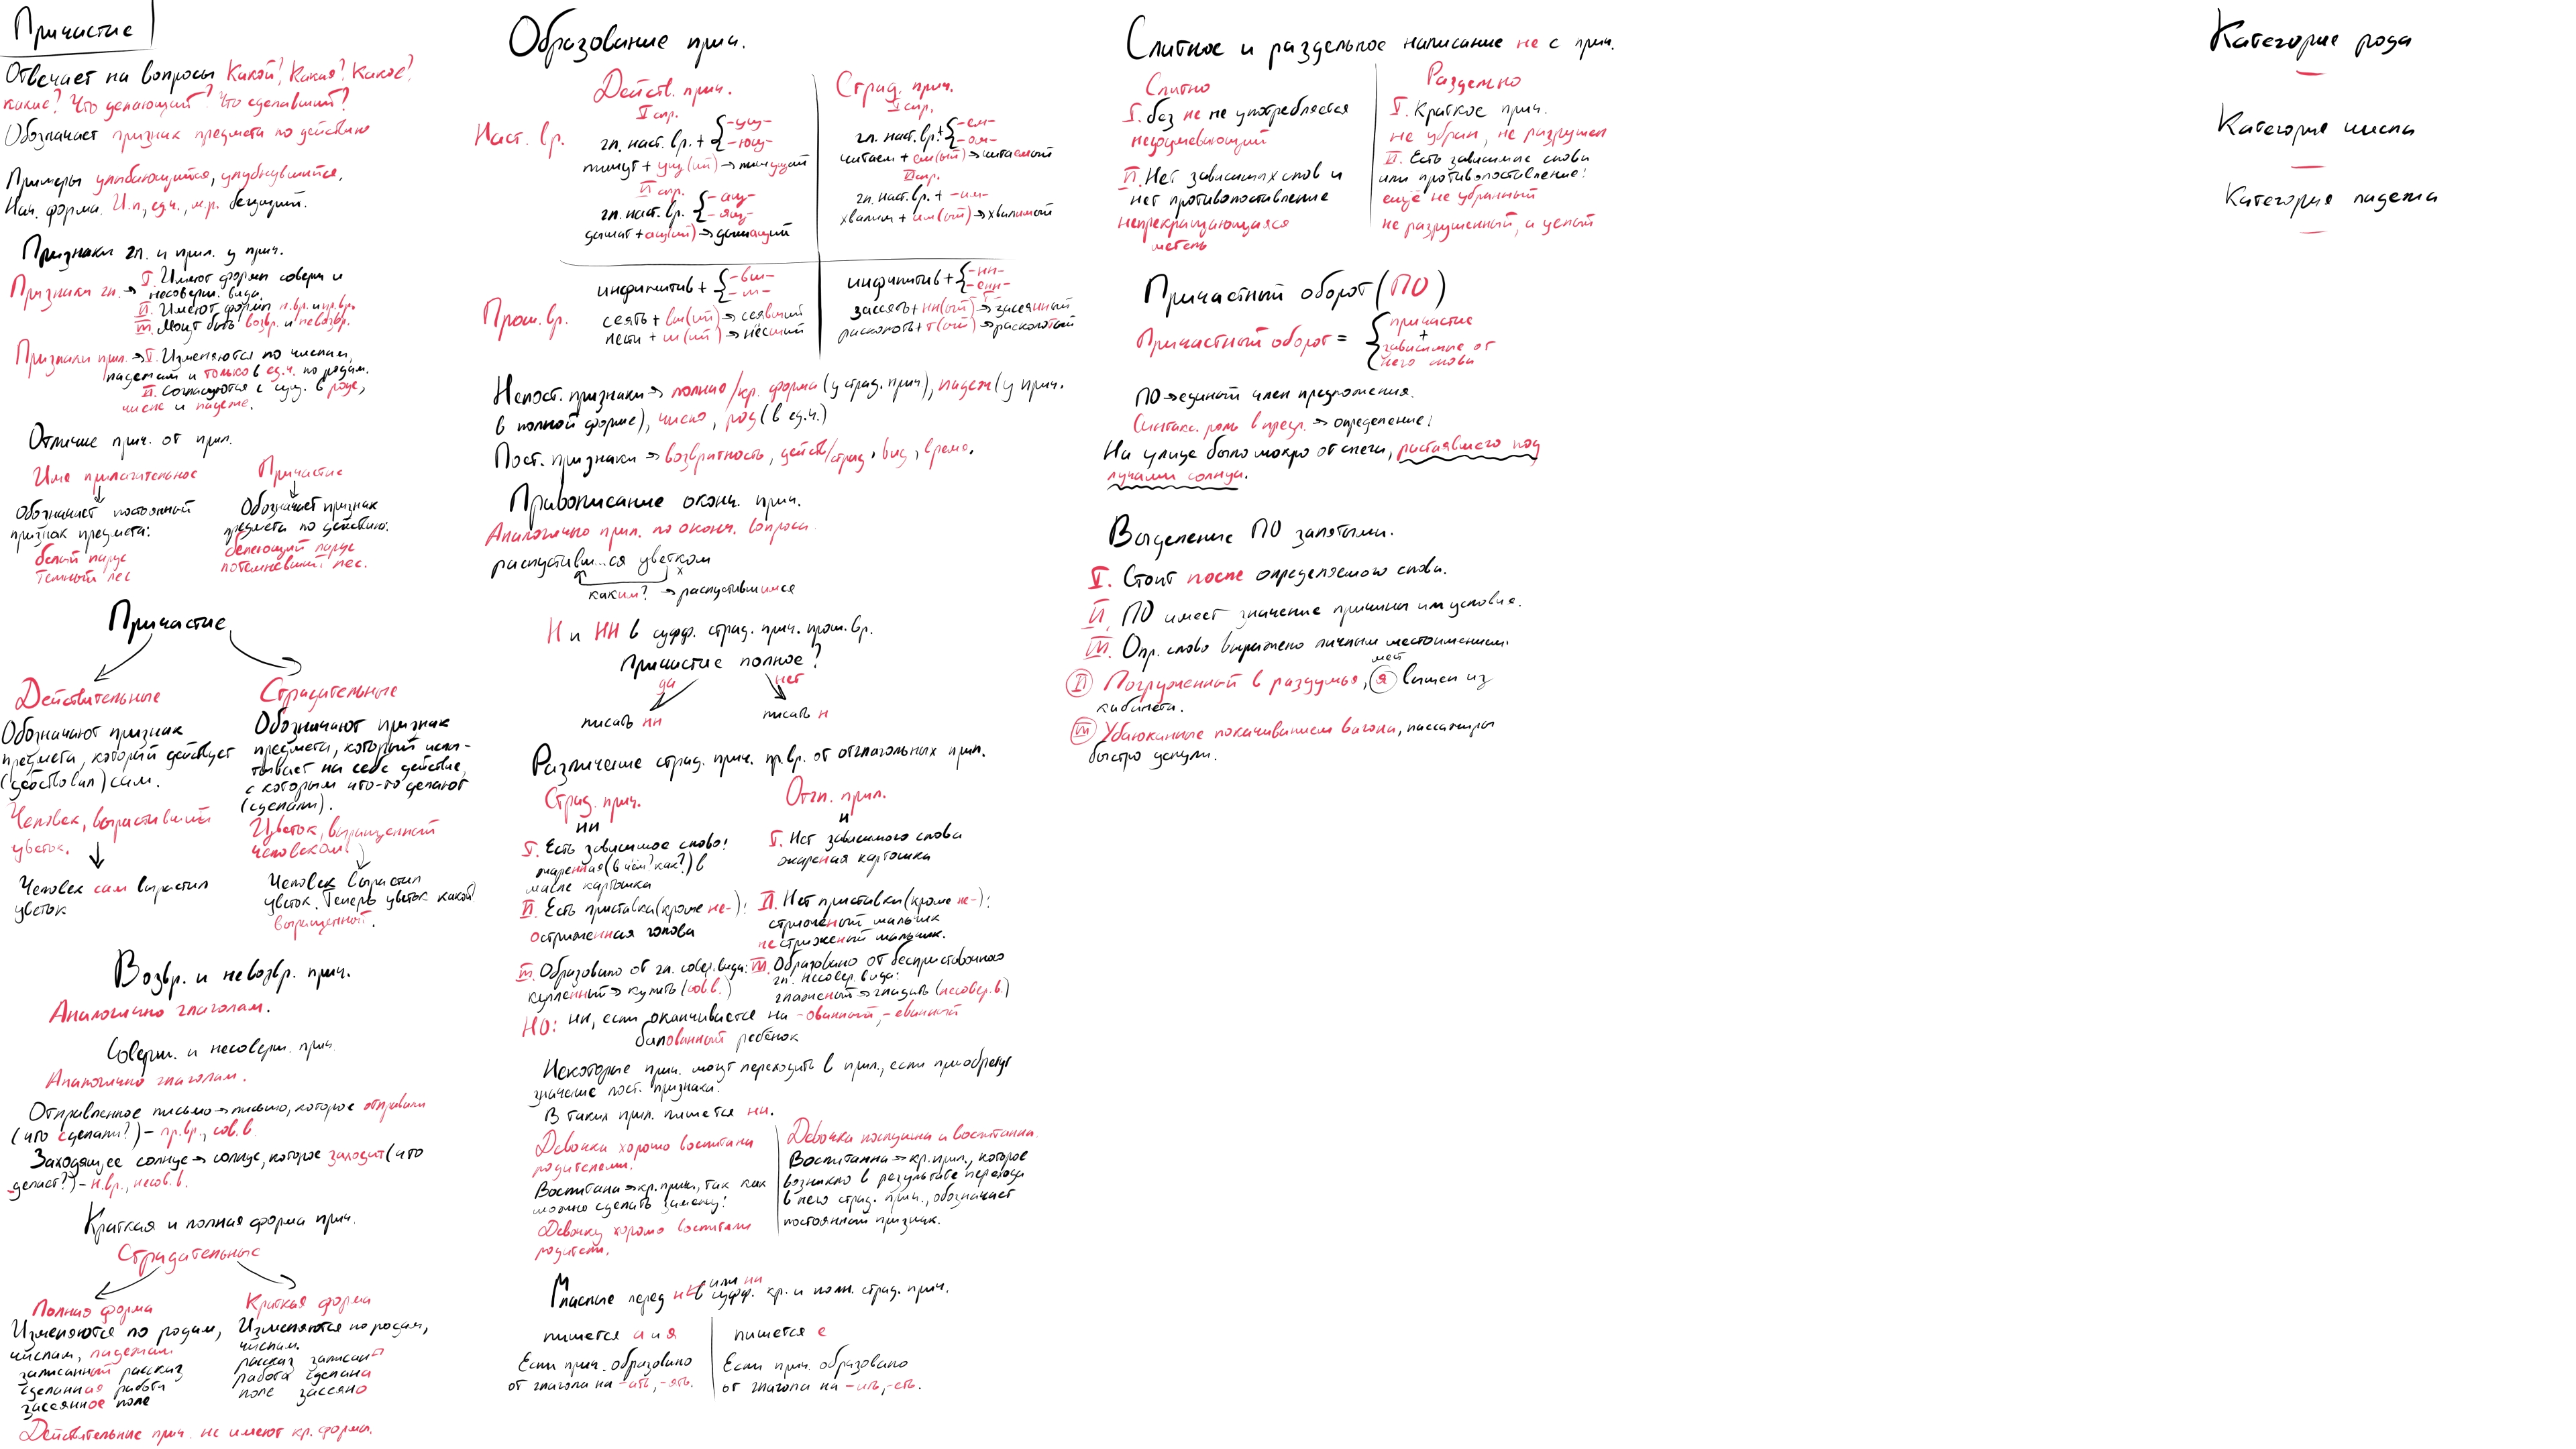 Причастие
Отвечает на вопросы Какой? Какая? Какое?
какие? Что делающий? Что сделавший?
Обозначает признак предмета по действию
Примеры улыбающийся, улыбнувшийся.
Нач. форма. И.п, ед.ч., м.р. бегущий.
Признаки гл. и прил. у прич.
Признаки гл. → I. Имеют формы соверш и
несоверш. вида.
II. Имеют формы н.вр. и пр.вр.
III. Могут быть возвр. и невозвр.
Признаки прил. → I. Изменяются по числам,
падежам и только в ед.ч. по родам.
II. Согласуются с сущ. в роде,
числе и падеже.
Отличие прич. от прил.
Имя прилагательное
Обозначает постоянный
признак предмета:
белый парус
тёмный лес
Причастие
Обозначает признак
предмета по действию:
белеющий парус
потемневший лес.
Причастие
Действительные
Обозначают признак
предмета, который действует
(действовал) сам.
Человек, вырастивший
цветок.
Человек сам вырастил
цветок
Страдательные
Обозначают признак
предмета, который испы-
тывает на себе действие,
с которым что-то делают
(сделали).
Цветок, выращенный
человеком.
Человек вырастил
цветок. Теперь цветок какой?
выращенный.
Возвр. и невозвр. прич.
Аналогично глаголам.
Соверш. и несоверш. прич.
Аналогично глаголам.
Отправленное письмо → письмо, которое отправили
(что сделали?) – пр.вр., сов.в.
Заходящее солнце → солнце, которое заходит (что
делает?) – н.вр., несов.в.
Краткая и полная форма прич.
Страдательные
Полная форма
Изменяются по родам,
числам, падежам.
записанный рассказ
сделанная работа
засеянное поле
Краткая форма
Изменяются по родам,
числам.
рассказ записан
работа сделана
поле засеяно
Действительные прич. не имеют кр. формы.
Образование прич.
Действ. прич.
Страд. прич.
Наст. вр.
I спр.
гл. наст. вр. + { -ущ-
-ющ-
пишут + ущ(ий) → пишущий
II спр.
гл. наст. вр. { -ащ-
-ящ-
дышат + ащ(ий) → дышащий
I спр.
гл. наст. вр. + { -ем-
-ом-
читаем + ем(ый) → читаемый
II спр.
гл. наст. вр. + -им-
хвалим + им(ый) → хвалимый
Прош. вр.
инфинитив + { -вш-
-ш-
сеять + вш(ий) → сеявший
нести + ш(ий) → нёсший
инфинитив + { -нн-
-енн-
-т-
засеять + нн(ый) → засеянный
расколоть + т(ый) → расколотый
Непост. признаки → полная/кр. форма (у страд. прич), падеж (у прич.
в полной форме), число, род (в ед.ч.)
Пост. признаки → возвратность, действ/страд, вид, время.
Правописание оконч. прич.
Аналогично прил. по оконч. вопроса.
распустивш...ся цветком
х
каким? → распустившимся
Н и НН в суфф. страд. прич. прош. вр.
Причастие полное?
да
нет
писать нн
писать н
Различение страд. прич. пр.вр. от отглагольных прил.
Страд. прич.
нн
I. Есть зависимое слово:
жаренная (в чём? как?) в
масле картошка
II. Есть приставка (кроме не-):
остриженная голова
III. Образовано от гл. совер. вида:
купленный → купить (сов в.)
Отгл. прил.
н
I. Нет зависимого слова
жареная картошка
II. Нет приставки (кроме не-):
стриженый мальчик
нестриженый мальчик.
III. Образовано от бесприставочного
гл. несовер. вида:
глаженый → гладить (несовер. в.)
НО: нн, если оканчивается на -ованный, -еванный
балованный ребёнок
Некоторые прич. могут переходить в прил., если приобретут
значение пост. признака.
В таких прил. пишется нн.
Девочка хорошо воспитана
родителями.
Воспитана → кр. прич, так как
можно сделать замену:
Девочку хорошо воспитали
родители.
Девочка послушна и воспитанна.
Воспитанна → кр. прил., которое
возникло в результате перехода
в него страд. прич., обозначает
постоянный признак.
Гласные перед н или нн в суфф. кр. и полн. страд. прич.
пишется а и я
Если прич. образовано
от глагола на -ать, -ять.
пишется е
Если прич. образовано
от глагола на -ить, -еть.
Слитное и раздельное написание не с прич.
Слитно
I. без не не употребляется
недоумевающий
II. Нет зависимых слов и
нет противопоставление
непрекращающаяся
метель
Раздельно
I. Краткое прич.
не убран, не разрушен
II. Есть зависимые слова
или противопоставление:
ещё не убранный
не разрушенный, а целый
Причастный оборот (ПО)
Причастный оборот = { причастие
+
зависимые от
него слова
ПО → единый член предложения.
Синтакс. роль в предл. → определение:
На улице было мокро от снега, растаявшего под
лучами солнца.
Выделение ПО запятыми.
I. Стоит после определяемого слова.
II. ПО имеет значение причины или условие.
III. Опр. слово выражено личным местоимением.
мест
II Погруженный в раздумья, я вышел из
кабинета.
III Убаюканные покачиванием вагона, пассажиры
быстро уснули.
Категорие рода
–
Категория числа
–
Категория падежа
–